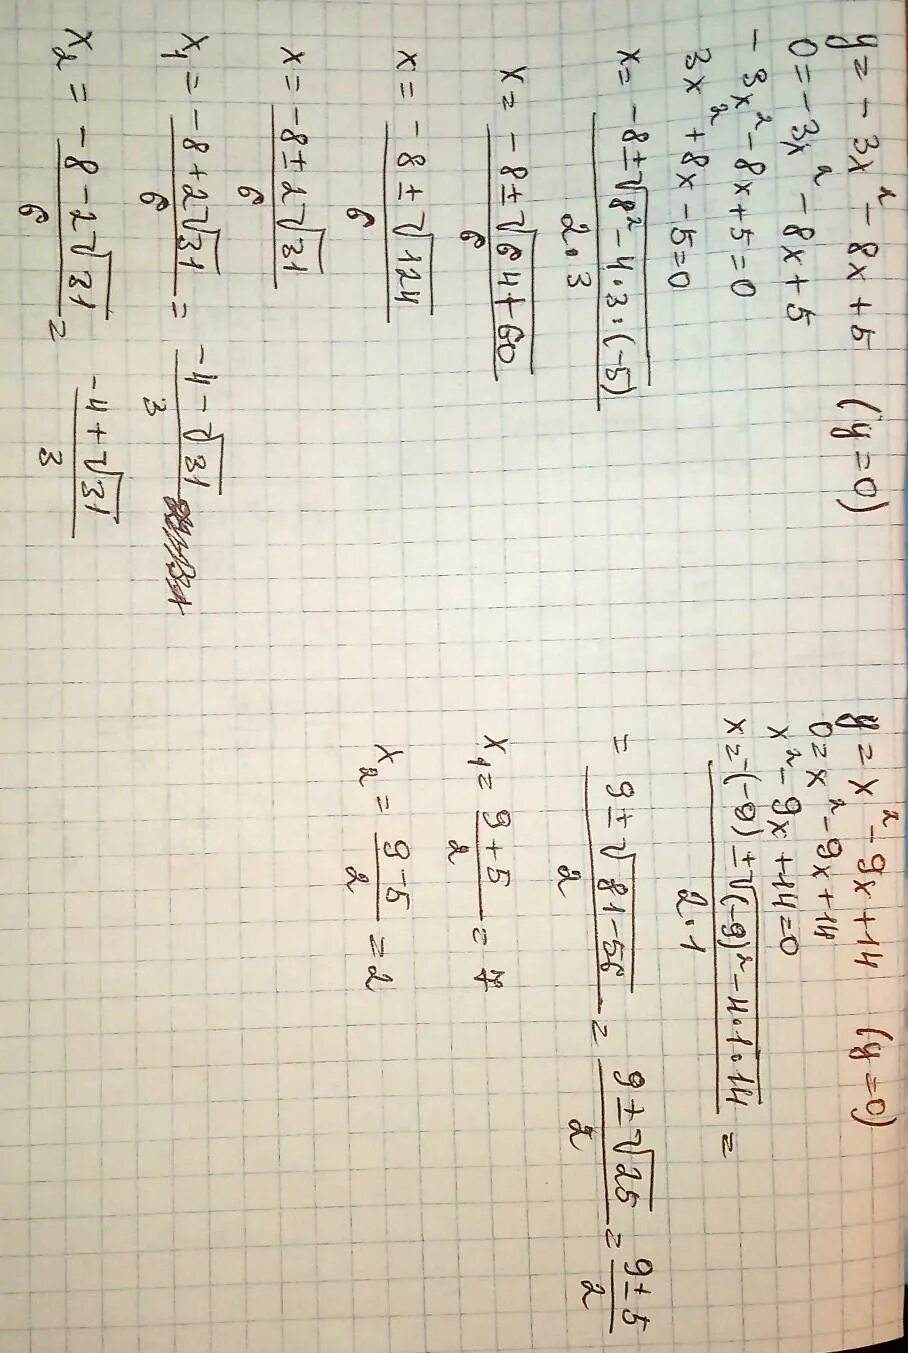 y = - 3x² - 8x + 5 (y = 0)
0 = - 3x² - 8x + 5
- 3x² - 8x + 5 = 0
3x² + 8x - 5 = 0
x = (-8 ± √(8² - 4·3·(-5))) / (2·3)
x = (-8 ± √(64 + 60)) / 6
x = (-8 ± √124) / 6
x = (-8 ± 2√31) / 6
x₁ = (-8 + 2√31) / 6 = (-4 - √31) / 3
x₂ = (-8 - 2√31) / 6 = (-4 + √31) / 3
y = x² - 9x + 14 (y = 0)
0 = x² - 9x + 14
x² - 9x + 14 = 0
x = (-(-9) ± √((-9)² - 4·1·14)) / (2·1) =
= (9 ± √(81 - 56)) / 2 = (9 ± √25) / 2 = (9 ± 5) / 2
x₁ = (9 + 5) / 2 = 7
x₂ = (9 - 5) / 2 = 2